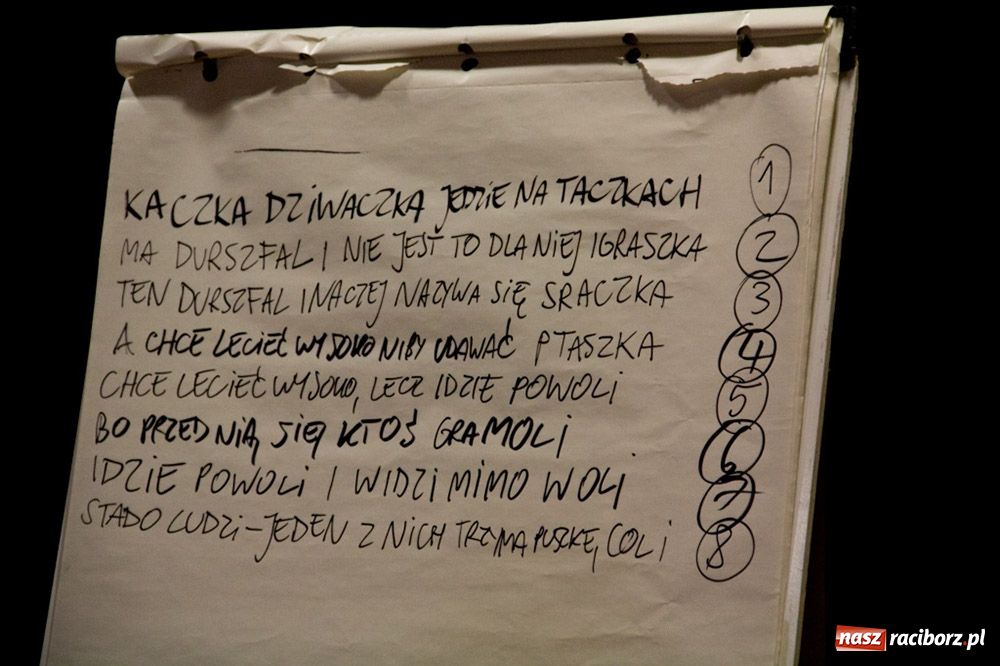 KACZKA DZIWACZKA JEDZIE NA TACZKACH 1
MA DURSZFAL I NIE JEST TO DLA NIEJ IGRASZKA 2
TEN DURSZFAL INACZEJ NAZYWA SIĘ SRACZKA 3
A CHCE LECIEĆ WYSOKO NIBY UDAWAĆ PTASZKA 4
CHCE LECIEĆ WYSOKO, LECZ IDZIE POWOLI 5
BO PRZED NIĄ SIĘ KTOŚ GRAMOLI 6
IDZIE POWOLI I WIDZI MIMO WOLI 7
STADO LUDZI - JEDEN Z NICH TRZYMA PUSZKĘ COLI 8
nasz raciborz.pl